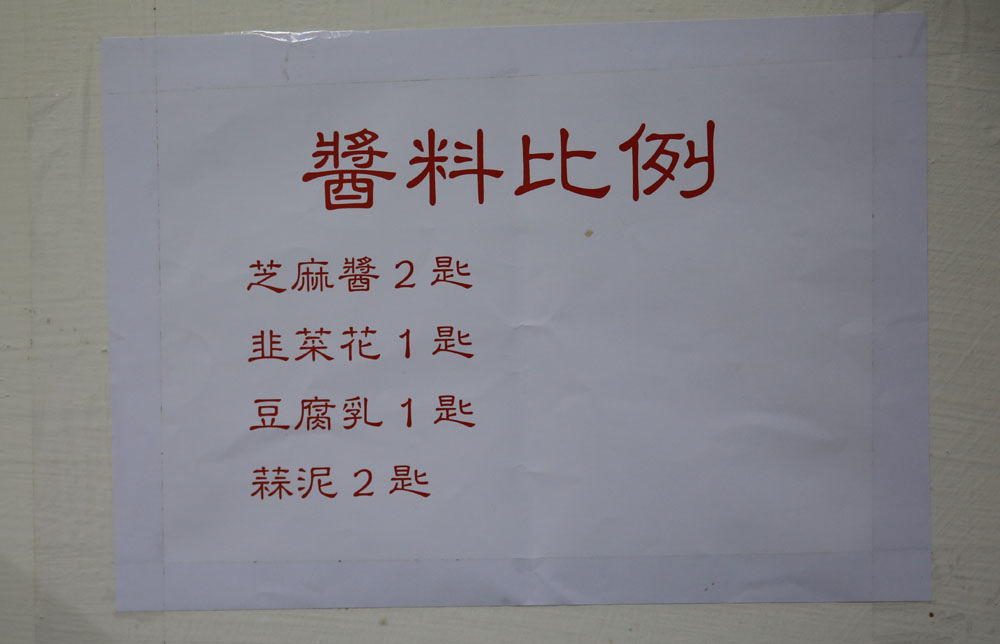 醬料比例
芝麻醬2匙
韭菜花1匙
豆腐乳1匙
蒜泥2匙